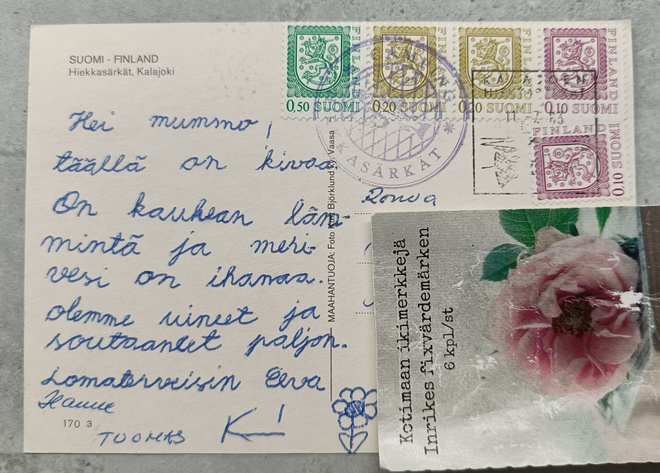 SUOMI - FINLAND
Hiekkasärkät, Kalajoki
Hei mummo!
täällä on kivaa.
On kauhean läm-
mintä ja meri-
vesi on ihanaa.
olemme uineet ja
soutaneet paljon.
Lomaterveisin Eeva
Hanne
TUOMAS K!
170 3
MAAHANTUOJA: Foto Björklund Vaasa
0.50 SUOMI
FINLAND
0.20 SUOMI
FINLAND
0.20 SUOMI
FINLAND
0.10 SUOMI
FINLAND
0.10 SUOMI
FINLAND
KASÄRKÄT
Kotimaan ikimerkkejä
Inrikes fixvärdemärken
6 kpl/st